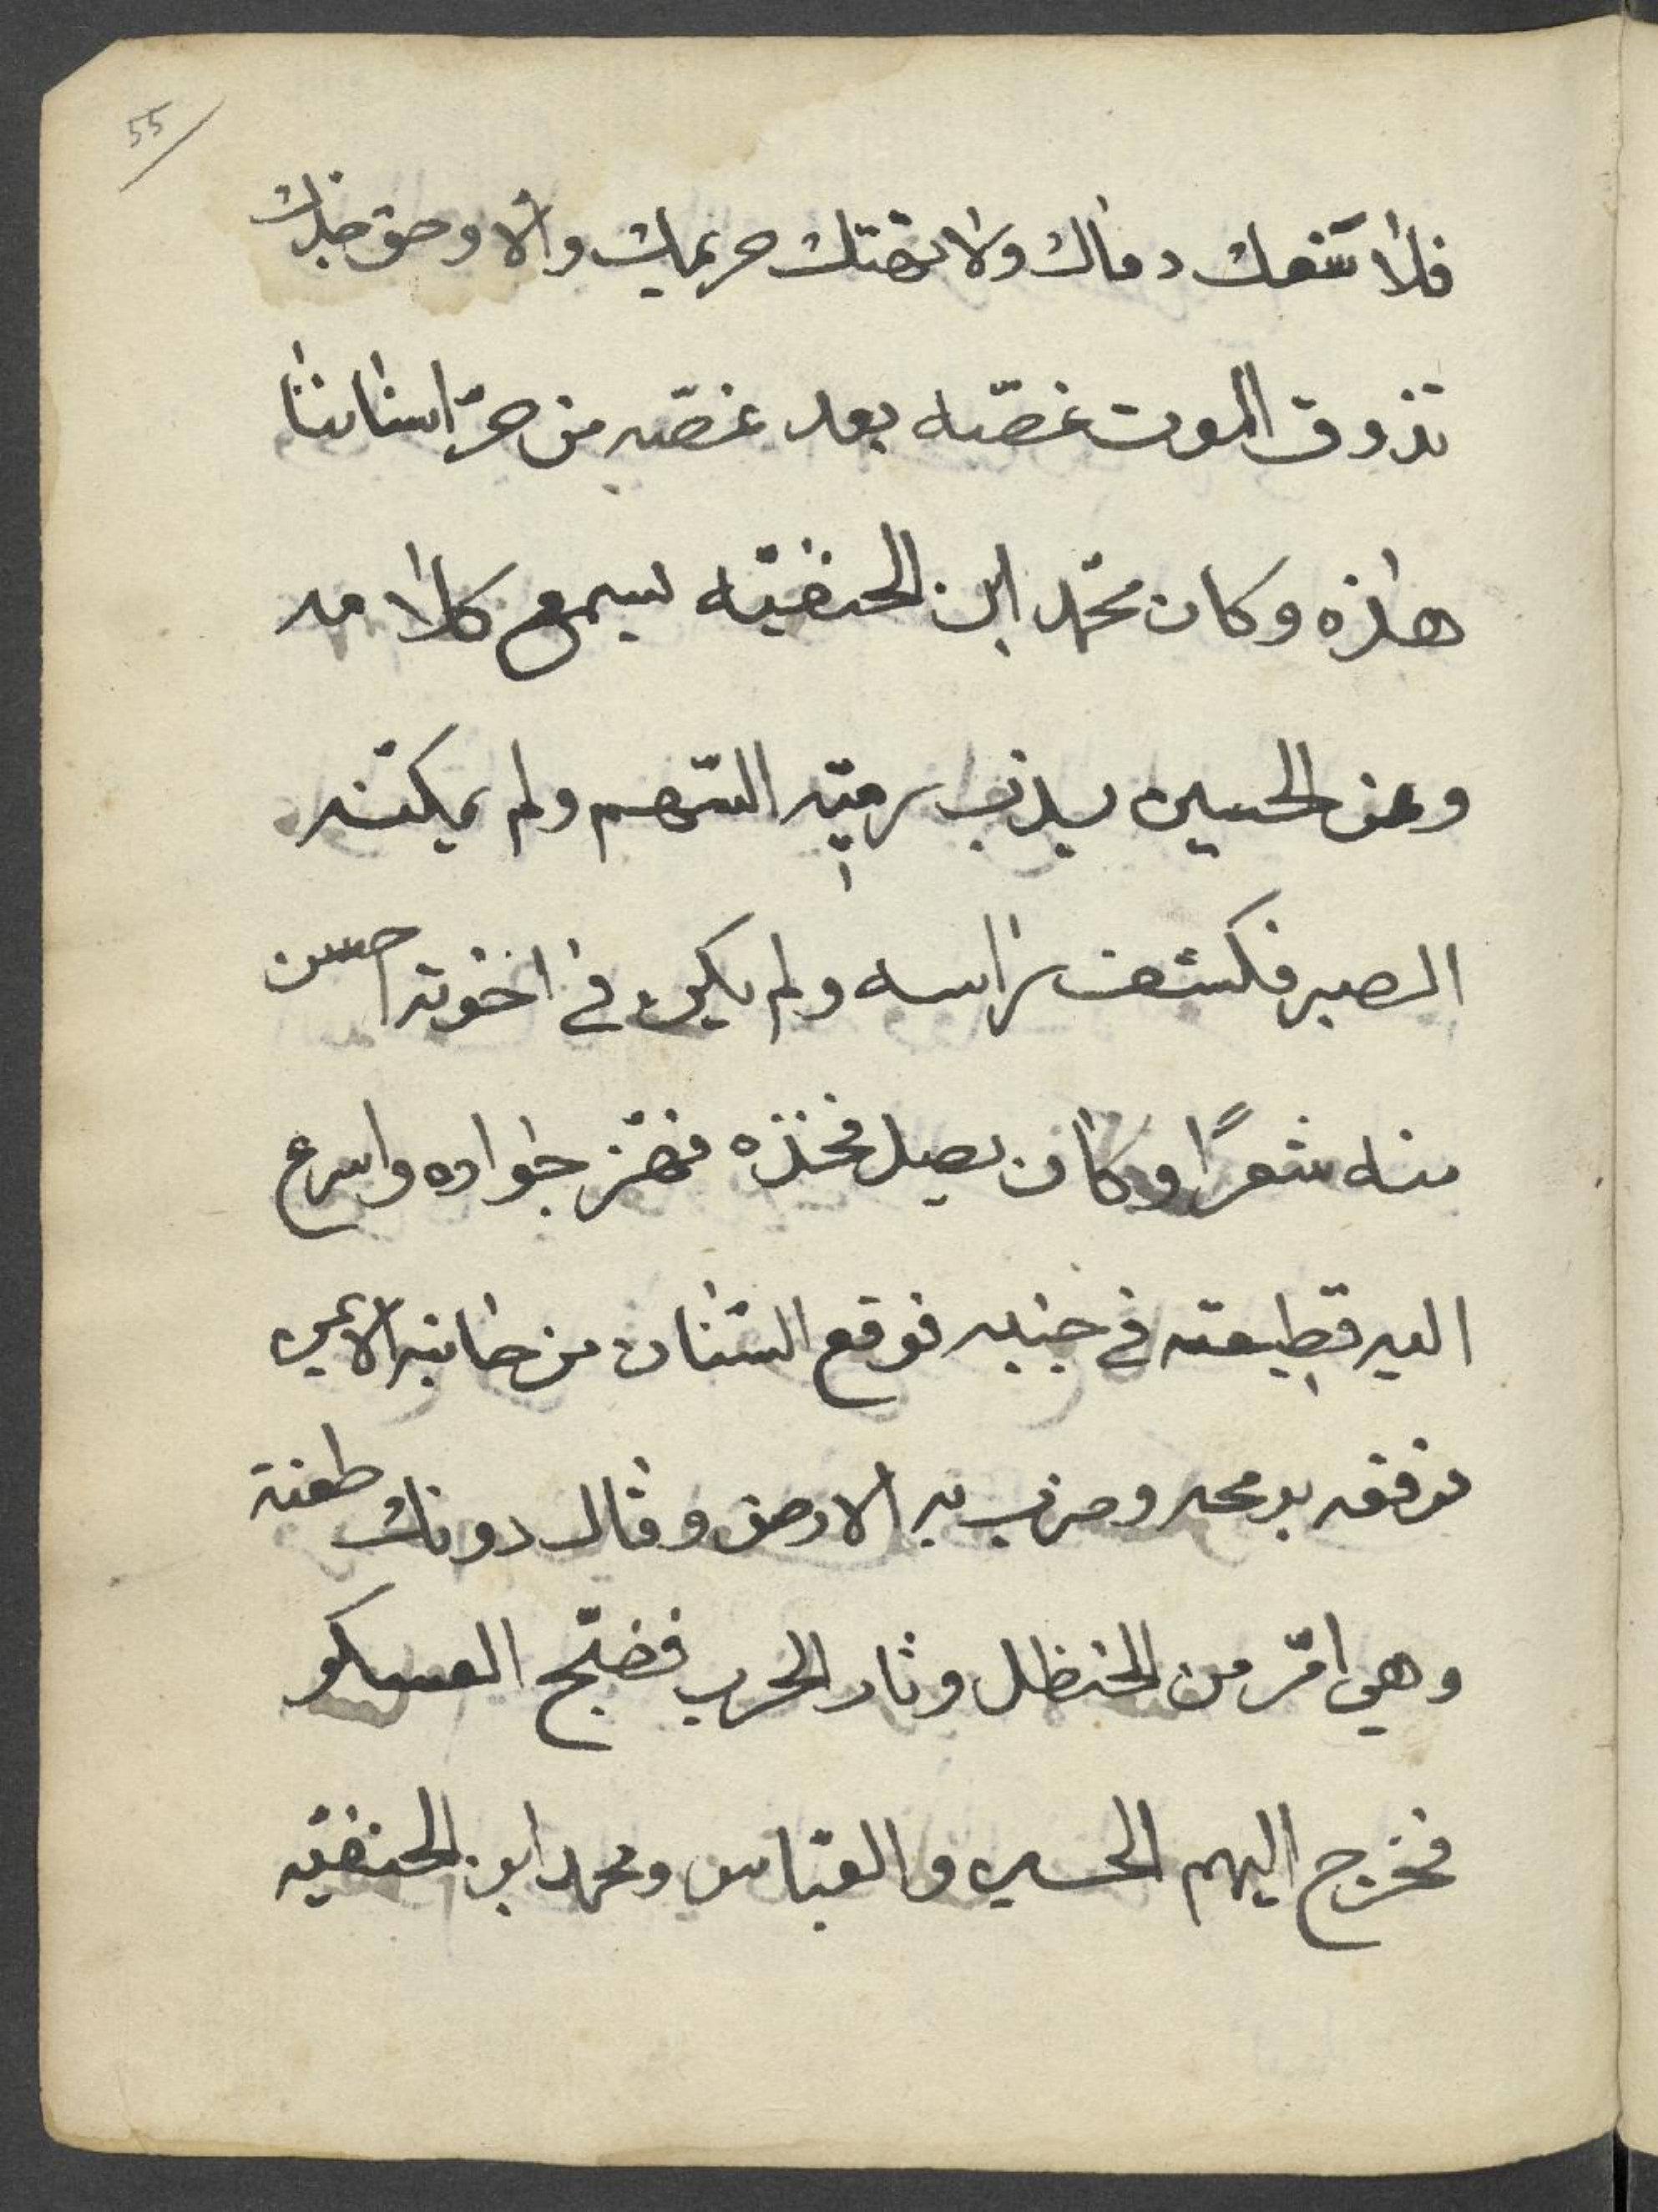 55
فلا تسفك دماك ولا تهتك حريمك والا وحق جدك
تذوق الموت غصّه بعد غصّه من حرّ اسناننا
هاذه وكان محمّد ابن الحنفيّه ليسمع كلامه
وعن الحسين يذب رميّه السّهم ولم يمكنه
الصبر فكشف راسه ولم يكن في اخوته احسن
منه شعرًا وكان يصل فخذه فهز جواده واسرع
اليه فطعنه في جنبه فوقع السّنان من جانبه الايمن
فرفقه برمحه وضرب به الارض وقال دونك طعنة
وهي امرّ من الحنظل وثار الحرب فضجّ العسكر
فخرج اليهم الحسين والعبّاس ومحمد ابن الحنفيّه